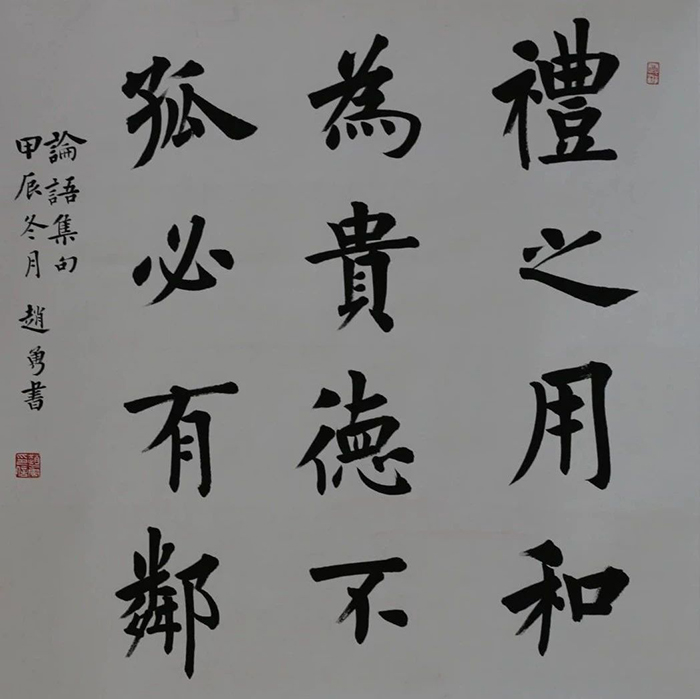 禮之用和
為貴德不
孤必有鄰
論語集句
甲辰冬月 趙勇書